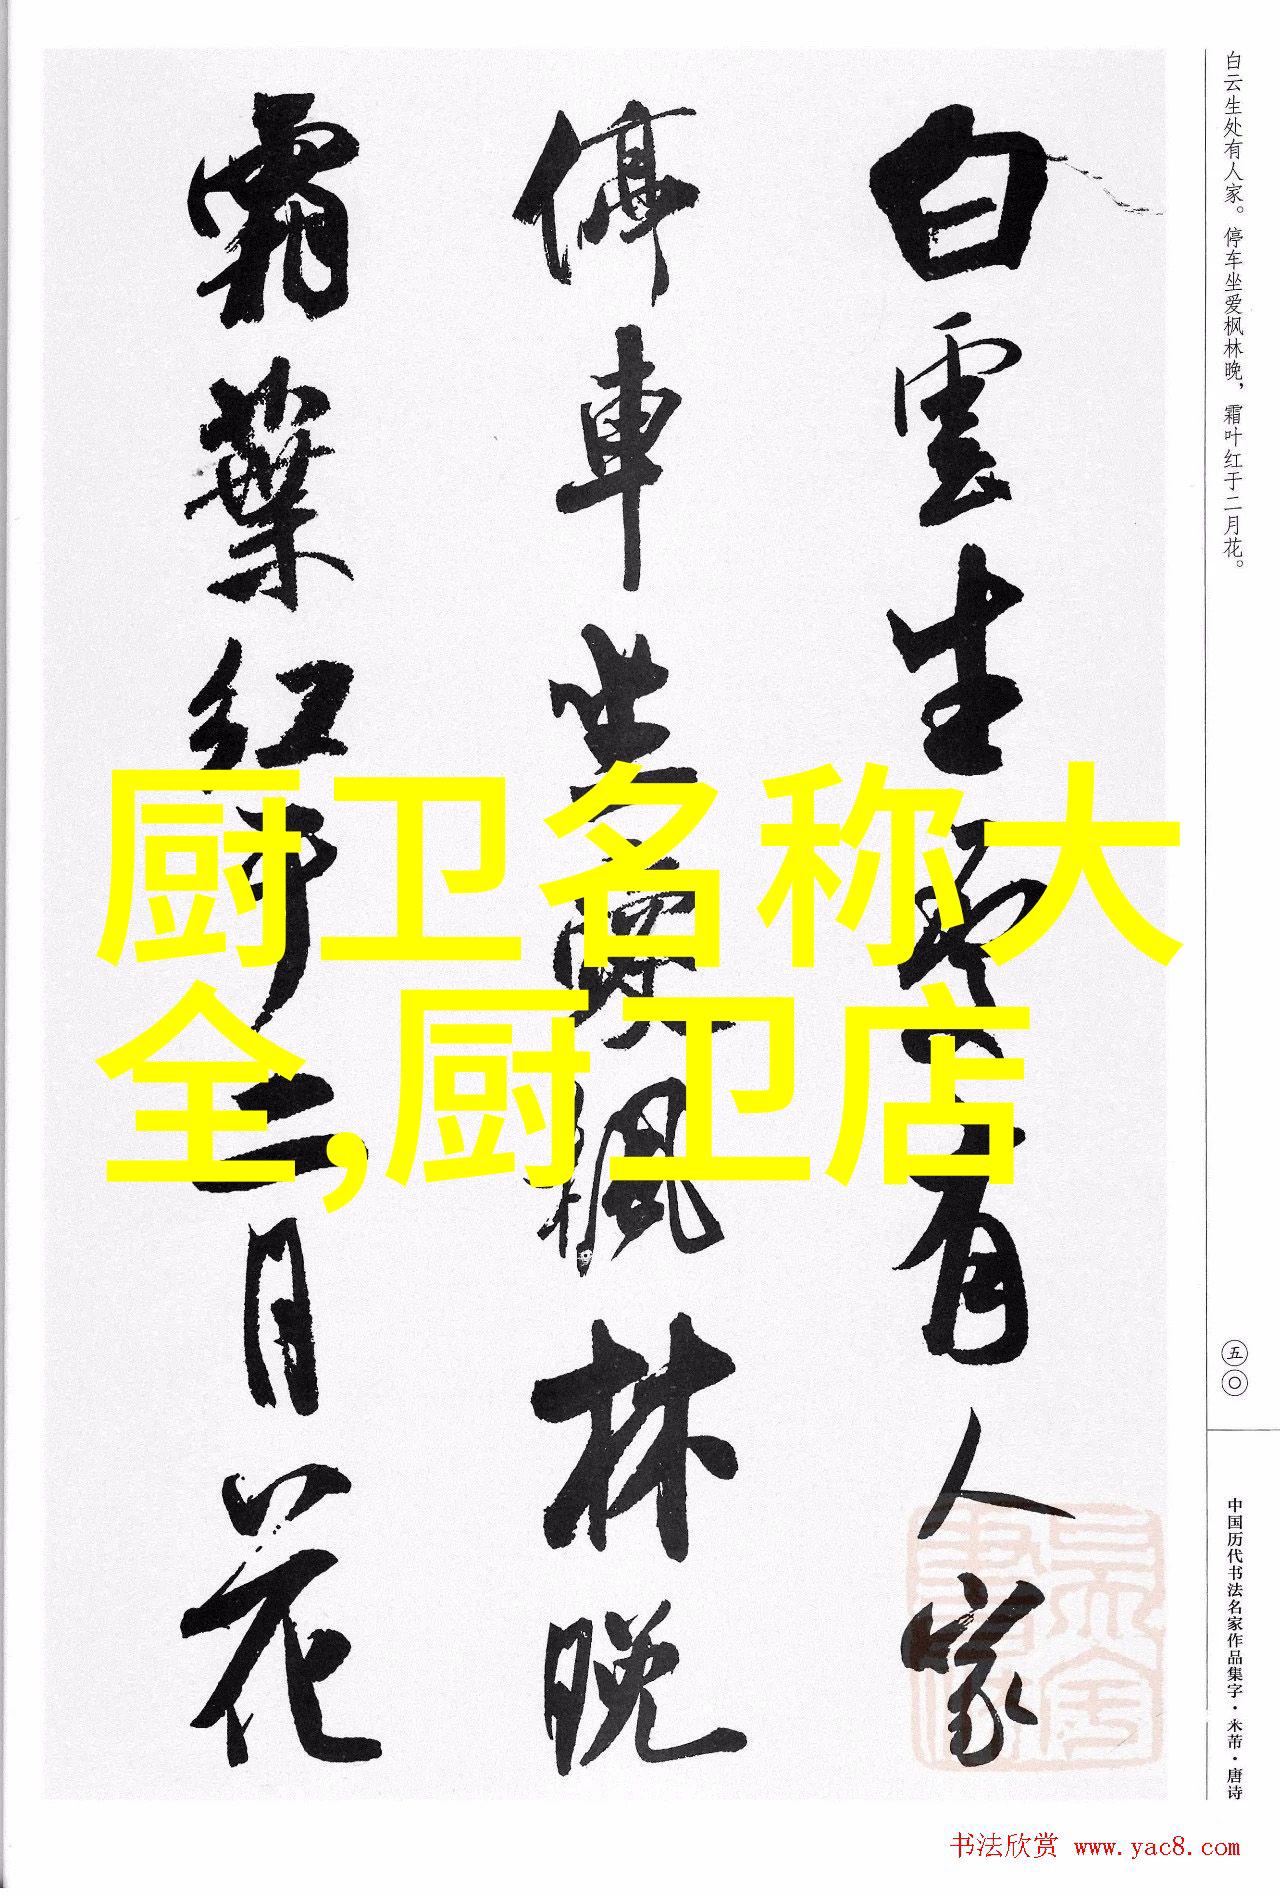 白云生处有人家。停车坐爱枫林晚，霜叶红于二月花。
白雲生處有人家
停車坐愛楓林晚
霜葉紅於二月花
厨卫名称大
全,厨卫店
五〇
中国历代书法名家作品集字·米芾·唐诗
书法欣赏 www.yac8.com